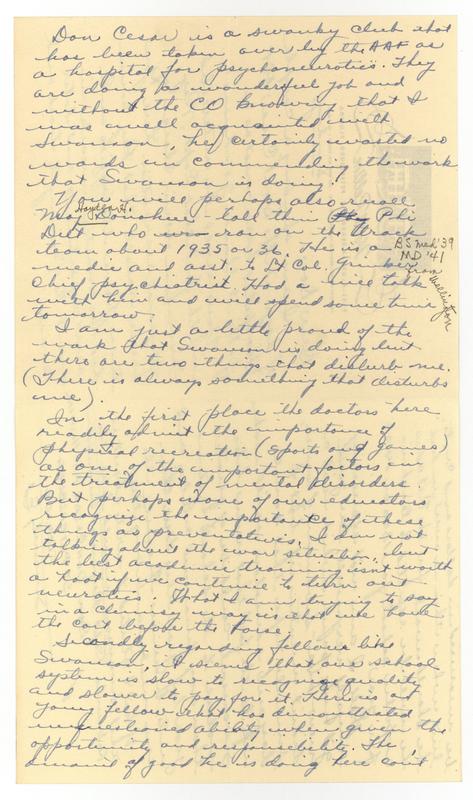 Don Cesar is a swanky club that
has been taken over by the AAF as
a hospital for psychoneurotics. They
are doing a wonderful job and
without the CO knowing that I
was well acquainted with
Swanson, he certainly wasted no
words in commending the work
that Swanson is doing.
You will perhaps also recall
Hayden H.
Maj Donahue - tall thin Phi
Delt who ran on the track
team about 1935 or 36. He is a
BS med '39
MD '41
from Wellington
medic and asst. to Lt Col. Grinker
Chief psychiatrist. Had a nice talk
with him and will spend some time
tomorrow.
I am just a little proud of the
work that Swanson is doing but
there are two things that disturb me.
(There is always something that disturbs
me).
In the first place the doctors here
readily admit the importance of
physical recreation (sports and games)
as one of the important factors in
the treatment of mental disorders.
But perhaps none of our educators
recognize the importance of these
things as preventatives. I am not
talking about the war situation, but
the best academic training isn't worth
a hoot if we continue to turn out
neurotics. What I am trying to say
in a clumsy way is that we have
the cart before the horse.
Secondly regarding fellows like
Swanson, it seems that our school
system is slow to recognize quality
and slower to pay for it. Here is a
young fellow that has demonstrated
unquestioned ability when given the
opportunity and responsibility. The
amount of good he is doing here can't